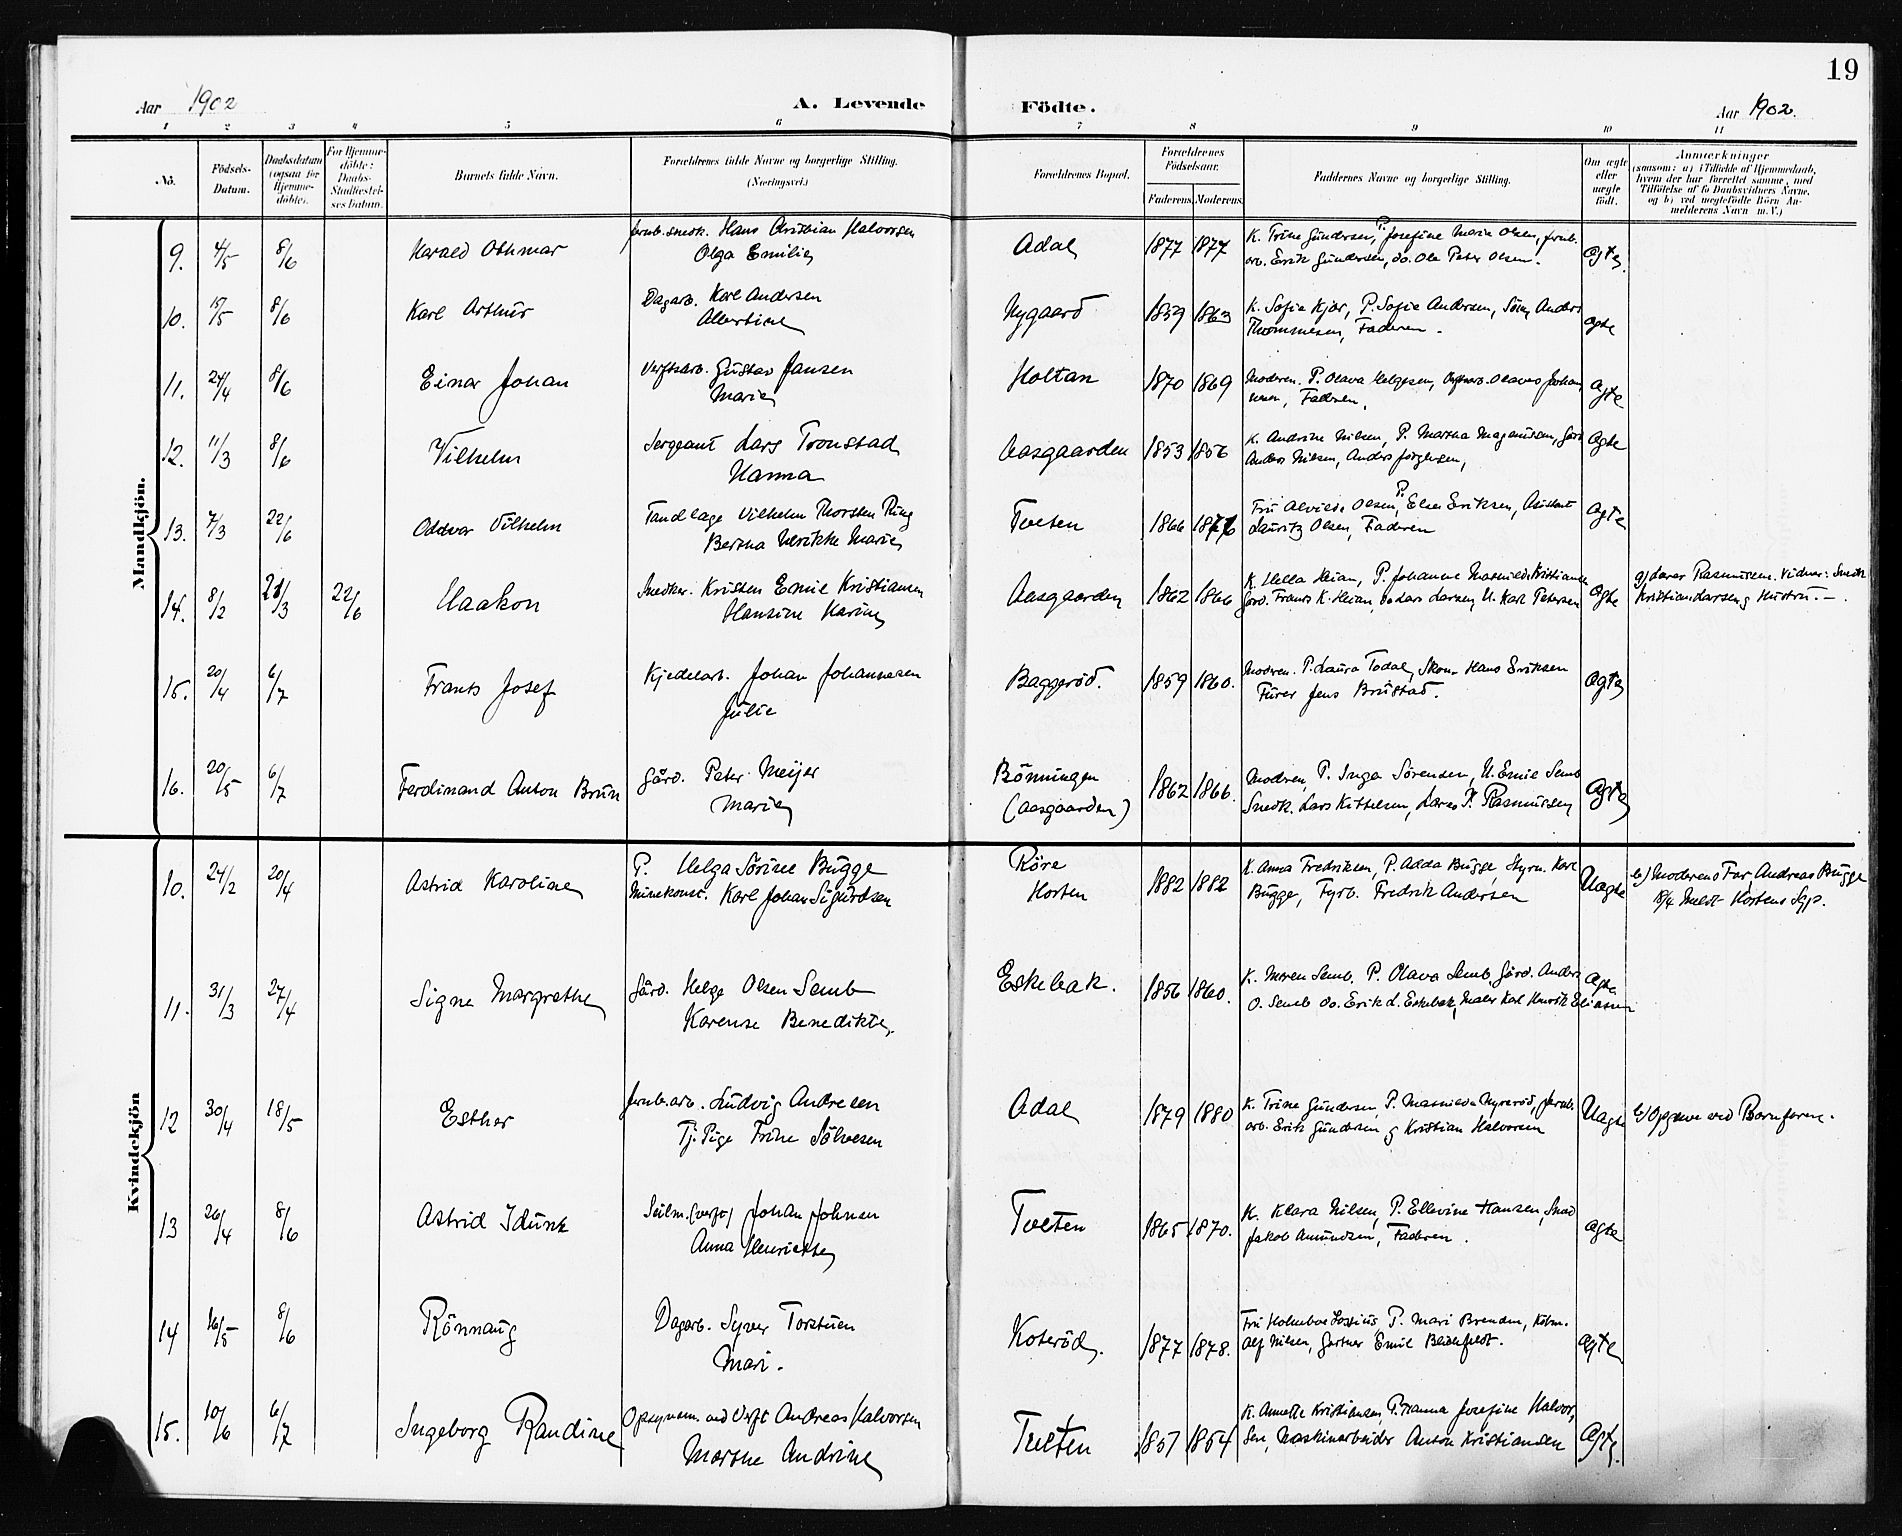 19
Aar 1902
A. Levende Födte.
Aar 1902.
1 2 3 4 5 6 7 8 9 10 11
No.
Födsels-Datum.
Daabsdatum (ogsaa for Hjemme-döbte).
For Hjemme-döbte: Daabs-Stadfæstel-ses Datum.
Barnets fulde Navn.
Forældrenes fulde Navne og borgerlige Stilling.
(Næringsvei.)
Forældrenes Bopæl.
Forældrenes Födselsaar.
Faderens. Moderens.
Faddernes Navne og borgerlige Stilling.
Om ægte eller uægte födt.
Anmærkninger
(saasom: a) i Tilfælde af Hjemmedaab,
hvem der har forrettet samme, med
Tilföielse af to Daabsvidners Navne,
og b) ved uægtefödte Börn An-
melderens Navn m. V.)
Mandkjön.
9. 4/5 8/6 Harald Othmar
Jernb. snedk. Hans Kristian Halvorsen
Olga Emilie
Adal 1877 1877
K. Trine Gundersen, P. Josefine Marie Olsen, Jernb.
arb. Erik Gundersen, do. Ole Peter Olsen.
Ægte
10. 15/5 8/6 Karl Arthur
Dagarb. Karl Andersen
Albertine
Nygaard 1859 1863
K. Sofie Kjær, P. Sofie Andersen, Anders
Thommesen, Faderen.
Ægte
11. 24/4 8/6 Einar Johan
Verftsarb. Gustav Jansen
Marie
Holtan 1870 1869
Moderen. P. Olava Helgesen, Olaves Johan
nesen, Faderen.
Ægte
12. 11/3 8/6 Vilhelm
Sergeant Lars Tronstad
Hanna
Aasgaarden 1853 1856
K. Andrine Nilsen, P. Martha Magnussen, Gård.
Anders Nilsen, Anders Jörgensen,
Ægte
13. 7/3 22/6 Oddvar Vilhelm
Tandlæge Vilhelm Thorsten Ring
Bertha Ulrikke Marie
Tveten 1866 1876
Fru Alvilde Olsen, P. Elsa Eriksen, Assistent
Lauritz Olsen, Faderen
Ægte
14. 8/2 21/3 22/6 Haakon
Snedker. Kristen Emil Kristiansen
Hansine Karine
Aasgaarden 1862 1866
K. Hella Heian, P. Johanne Mathilde Kristiansen
Gård. Frants K. Heian, do Lars Larsen, U. Karl Petersen
Ægte
a) Lærer Rasmussen. Vidner: Snedk.
Kristian Larsen og Hustru. —
15. 20/4 6/7 Frants Josef
Kjedelarb. Johan Johannesen
Julie
Baggeröd. 1859 1860.
Moderen. P. Laura Todal, Skom. Hans Eriksen
Furer Jens Brustad.
Ægte
16. 20/5 6/7 Ferdinand Anton Brun
Gård. Peter Meijer
Marie
Bönningen
(Aasgaarden) 1862 1866.
Moderen, P. Inga Sörensen, U. Emil Semb
Snedk. Lars Kittelsen, Lærer P. Rasmussen
Ægte
Kvindekjön
10. 24/2 20/4 Astrid Karoline
P. Helga Sörine Bugge
Minekonst. Karl Johan Sigurdsen
Röre
Horten 1882 1882
K. Anna Fredriksen, P. Adda Bugge, Styrm. Karl
Bugge, Fyrb. Fredrik Andersen
Uægte
b) Moderens Far, Andreas Bugge
18/4 meldt Hortens Sgp.
11. 31/3 27/4 Signe Margrethe
Gård. Helge Olsen Semb
Karense Benedikte.
Eskebæk. 1856 1860.
K. Maren Semb. P. Olava Semb, Gård. Anders
O. Semb do. Erik L. Eskebæk, Maler Karl Henrik Eliassen
Ægte
12 30/4 18/5 Esther
Jernb.arb. Ludvig Andresen
Tj. Pige Trine Sölvesen
Adal 1879 1880
K. Trine Gundersen, P. Mathilde Nyreröd, Jernb.
arb. Erik Gundersen og Kristian Halvorsen
Uægte
b) Opgave ved Barnefaren.
13 26/4 8/6 Astrid Idunn
Seilm. (verft) Johan Johnsen
Anna Henriette
Tveten 1865 1870.
K. Klara Nilsen, P. Ellevine Hansen, Sned
Jakob Amundsen, Faderen.
Ægte
14 16/5 8/6 Rönnaug
Dagarb. Syver Torstuen
Mari.
Koteröd. 1877 1878.
Fru Holmboe Lossius, P. Mari Brenden, Köbm.
Alf Nilsen, Gartner Emil Blichfeldt.
Ægte
15. 10/6 6/7 Ingeborg Randine
Opsynsm. ved Verft Andreas Halvorsen
Marthe Andrine
Tveten 1857 1854
K. Annette Kristiansen, P. Hanna Josefine Halvor,
sen, Maskinarbeider Anton Kristiansen
Ægte.